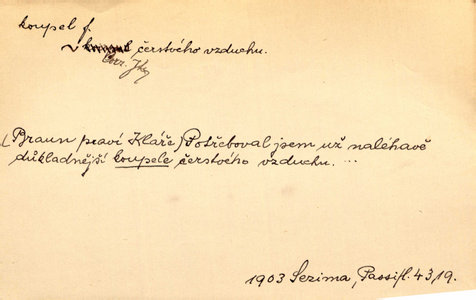 koupel f.
v čerstvého vzduchu.
(Braun praví Kláře) Potřeboval jsem už naléhavě
důkladnější koupele čerstvého vzduchu. ...
1903 Sezima, Passifl. 43,19.